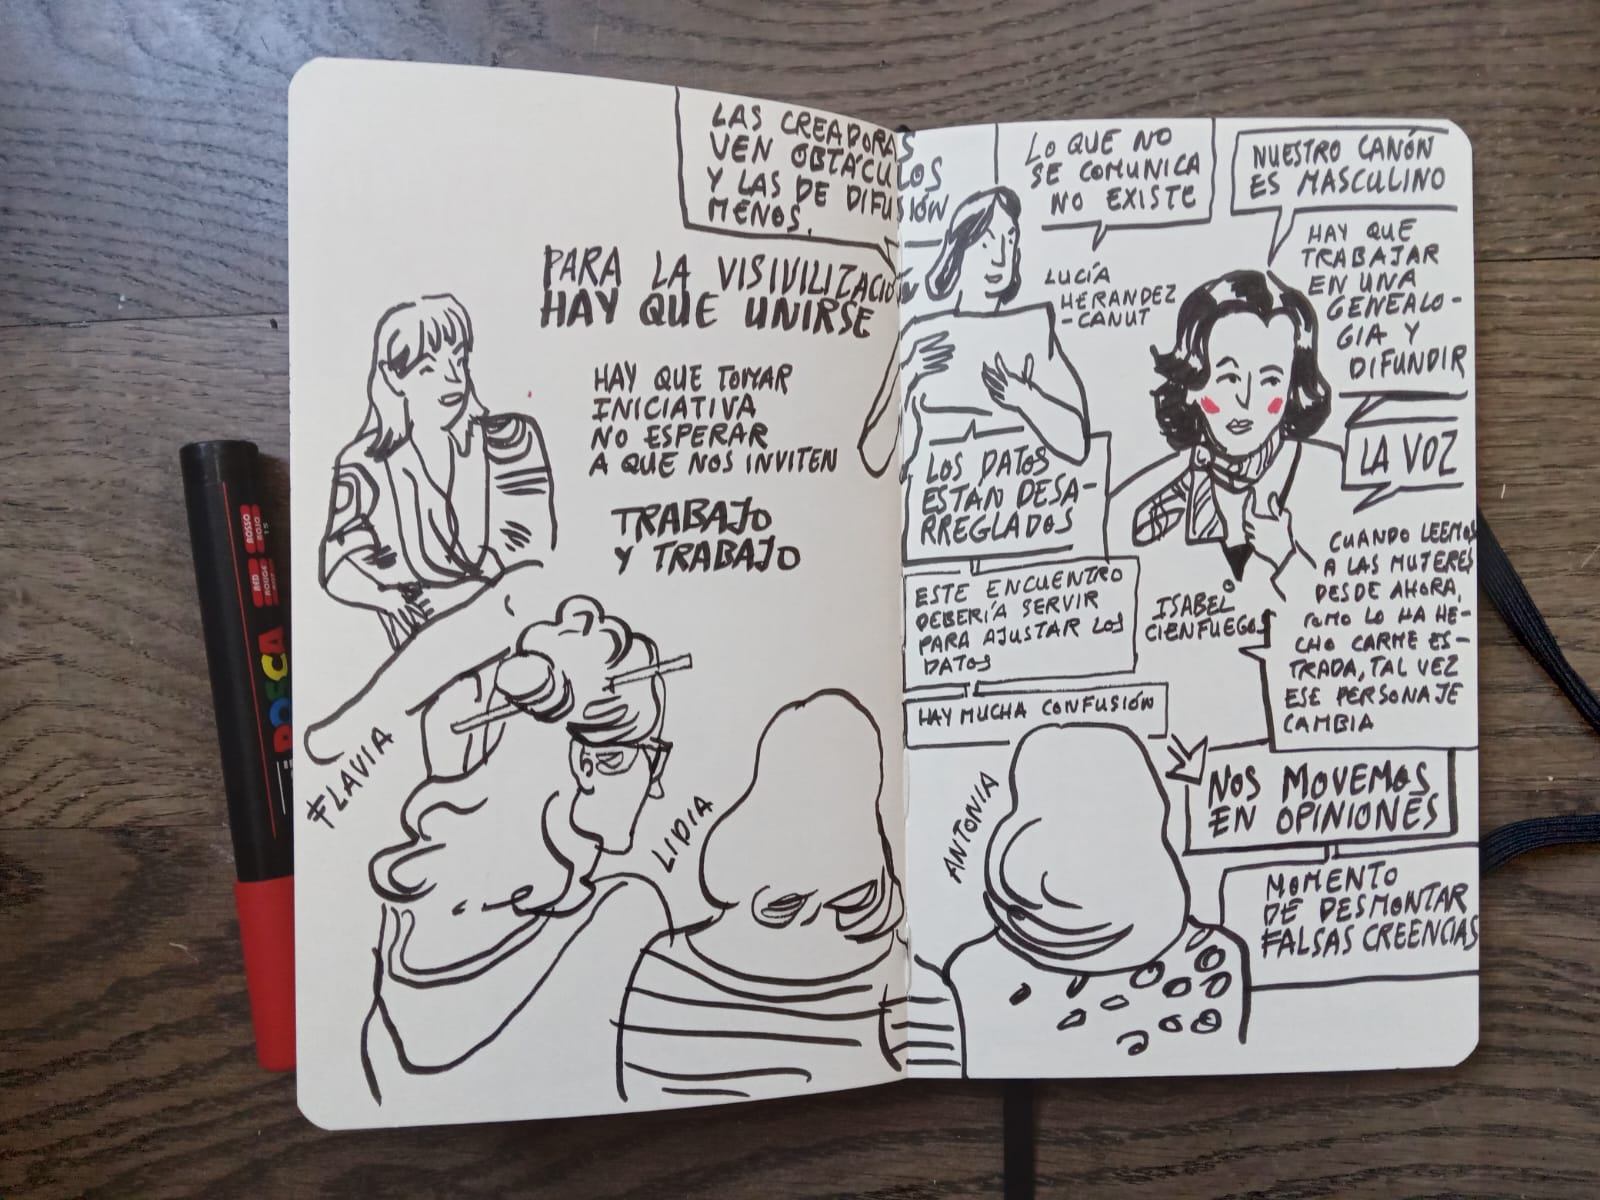 LAS CREADORAS
VEN OBTÁCULOS
Y LAS DE DIFUSIÓN
MENOS.
PARA LA VISIVILIZACIÓN
HAY QUE UNIRSE
HAY QUE TOMAR
INICIATIVA
NO ESPERAR
A QUE NOS INVITEN
TRABAJO
Y TRABAJO
FLAVIA
LIDIA
LO QUE NO
SE COMUNICA
NO EXISTE
LUCÍA
HERANDEZ
-CANUT
LOS DATOS
ESTÁN DESA-
RREGLADOS
ESTE ENCUENTRO
DEBERÍA SERVIR
PARA AJUSTAR LOS
DATOS
HAY MUCHA CONFUSIÓN
ANTONIA
NUESTRO CANÓN
ES MASCULINO
HAY QUE
TRABAJAR
EN UNA
GENEALO-
GIA Y
DIFUNDIR
LA VOZ
ISABEL
CIENFUEGOS
CUANDO LEEMOS
A LAS MUJERES
DESDE AHORA,
COMO LO HA HE-
CHO CARME ES-
TRADA, TAL VEZ
ESE PERSONAJE
CAMBIA
NOS MOVEMOS
EN OPINIONES
MOMENTO
DE DESMONTAR
FALSAS CREENCIAS
POSCA
RED
ROUGE
ROSSO
ROJO
15